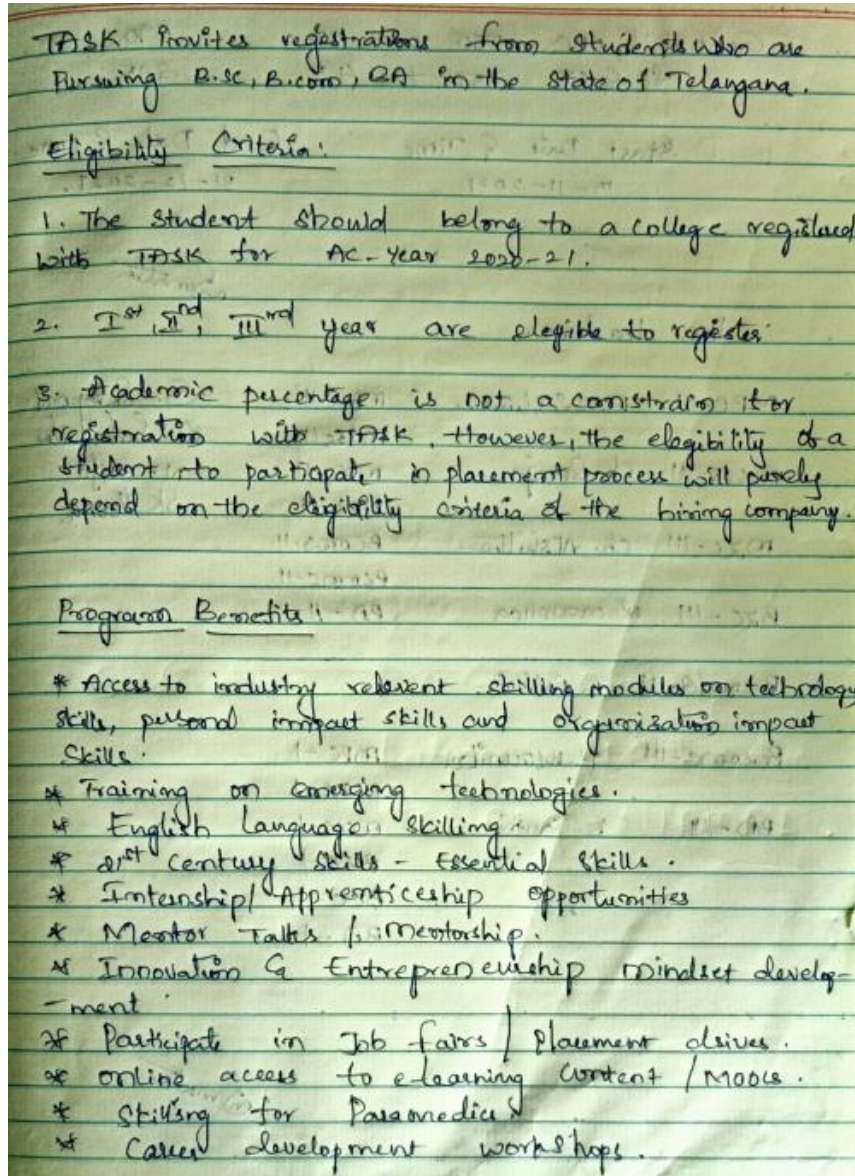 TASK invites regestrations from students who are
Pursuing B.sc, B.com, BA in the state of Telangana.
Eligibility Criteria:
1. The student should belong to a college registered
with TASK for AC-Year 2020-21.
2. Ist, IInd, IIIrd year are elegible to regester
3. Academic percentage is not a constrain for
registration with TASK. However, the elegibility of a
student to participate in placement process will purely
depend on the eligibility criteria of the hiring company.
Program Benefits:
* Access to industry relevent skilling modules on technology
skills, personal impact skills and organization impact
Skills.
* Training on emerging technologies.
* English Language skilling
* 21st Century Skills - Essential Skills.
* Internship/ Apprenticeship opportunities
* Mentor Talks / mentorship.
* Innovation & Entrepreneurship mindset develop-
-ment
* Participate in Job fairs / Placement drives.
* online access to e-learning content / MOOCs.
* Skilling for Paramedics
* Career development workshops.